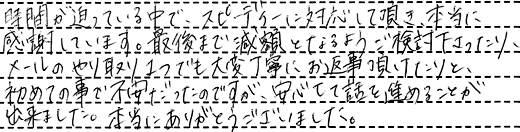 時間が迫っている中で、スピーディーに対応して頂き、本当に
感謝しています。最後まで減額となるようご検討下さったり、
メールのやり取り1つでも大変丁寧にお返事頂けたりと、
初めての事で不安だったのですが、安心して話を進めることが
出来ました。本当にありがとうございました。